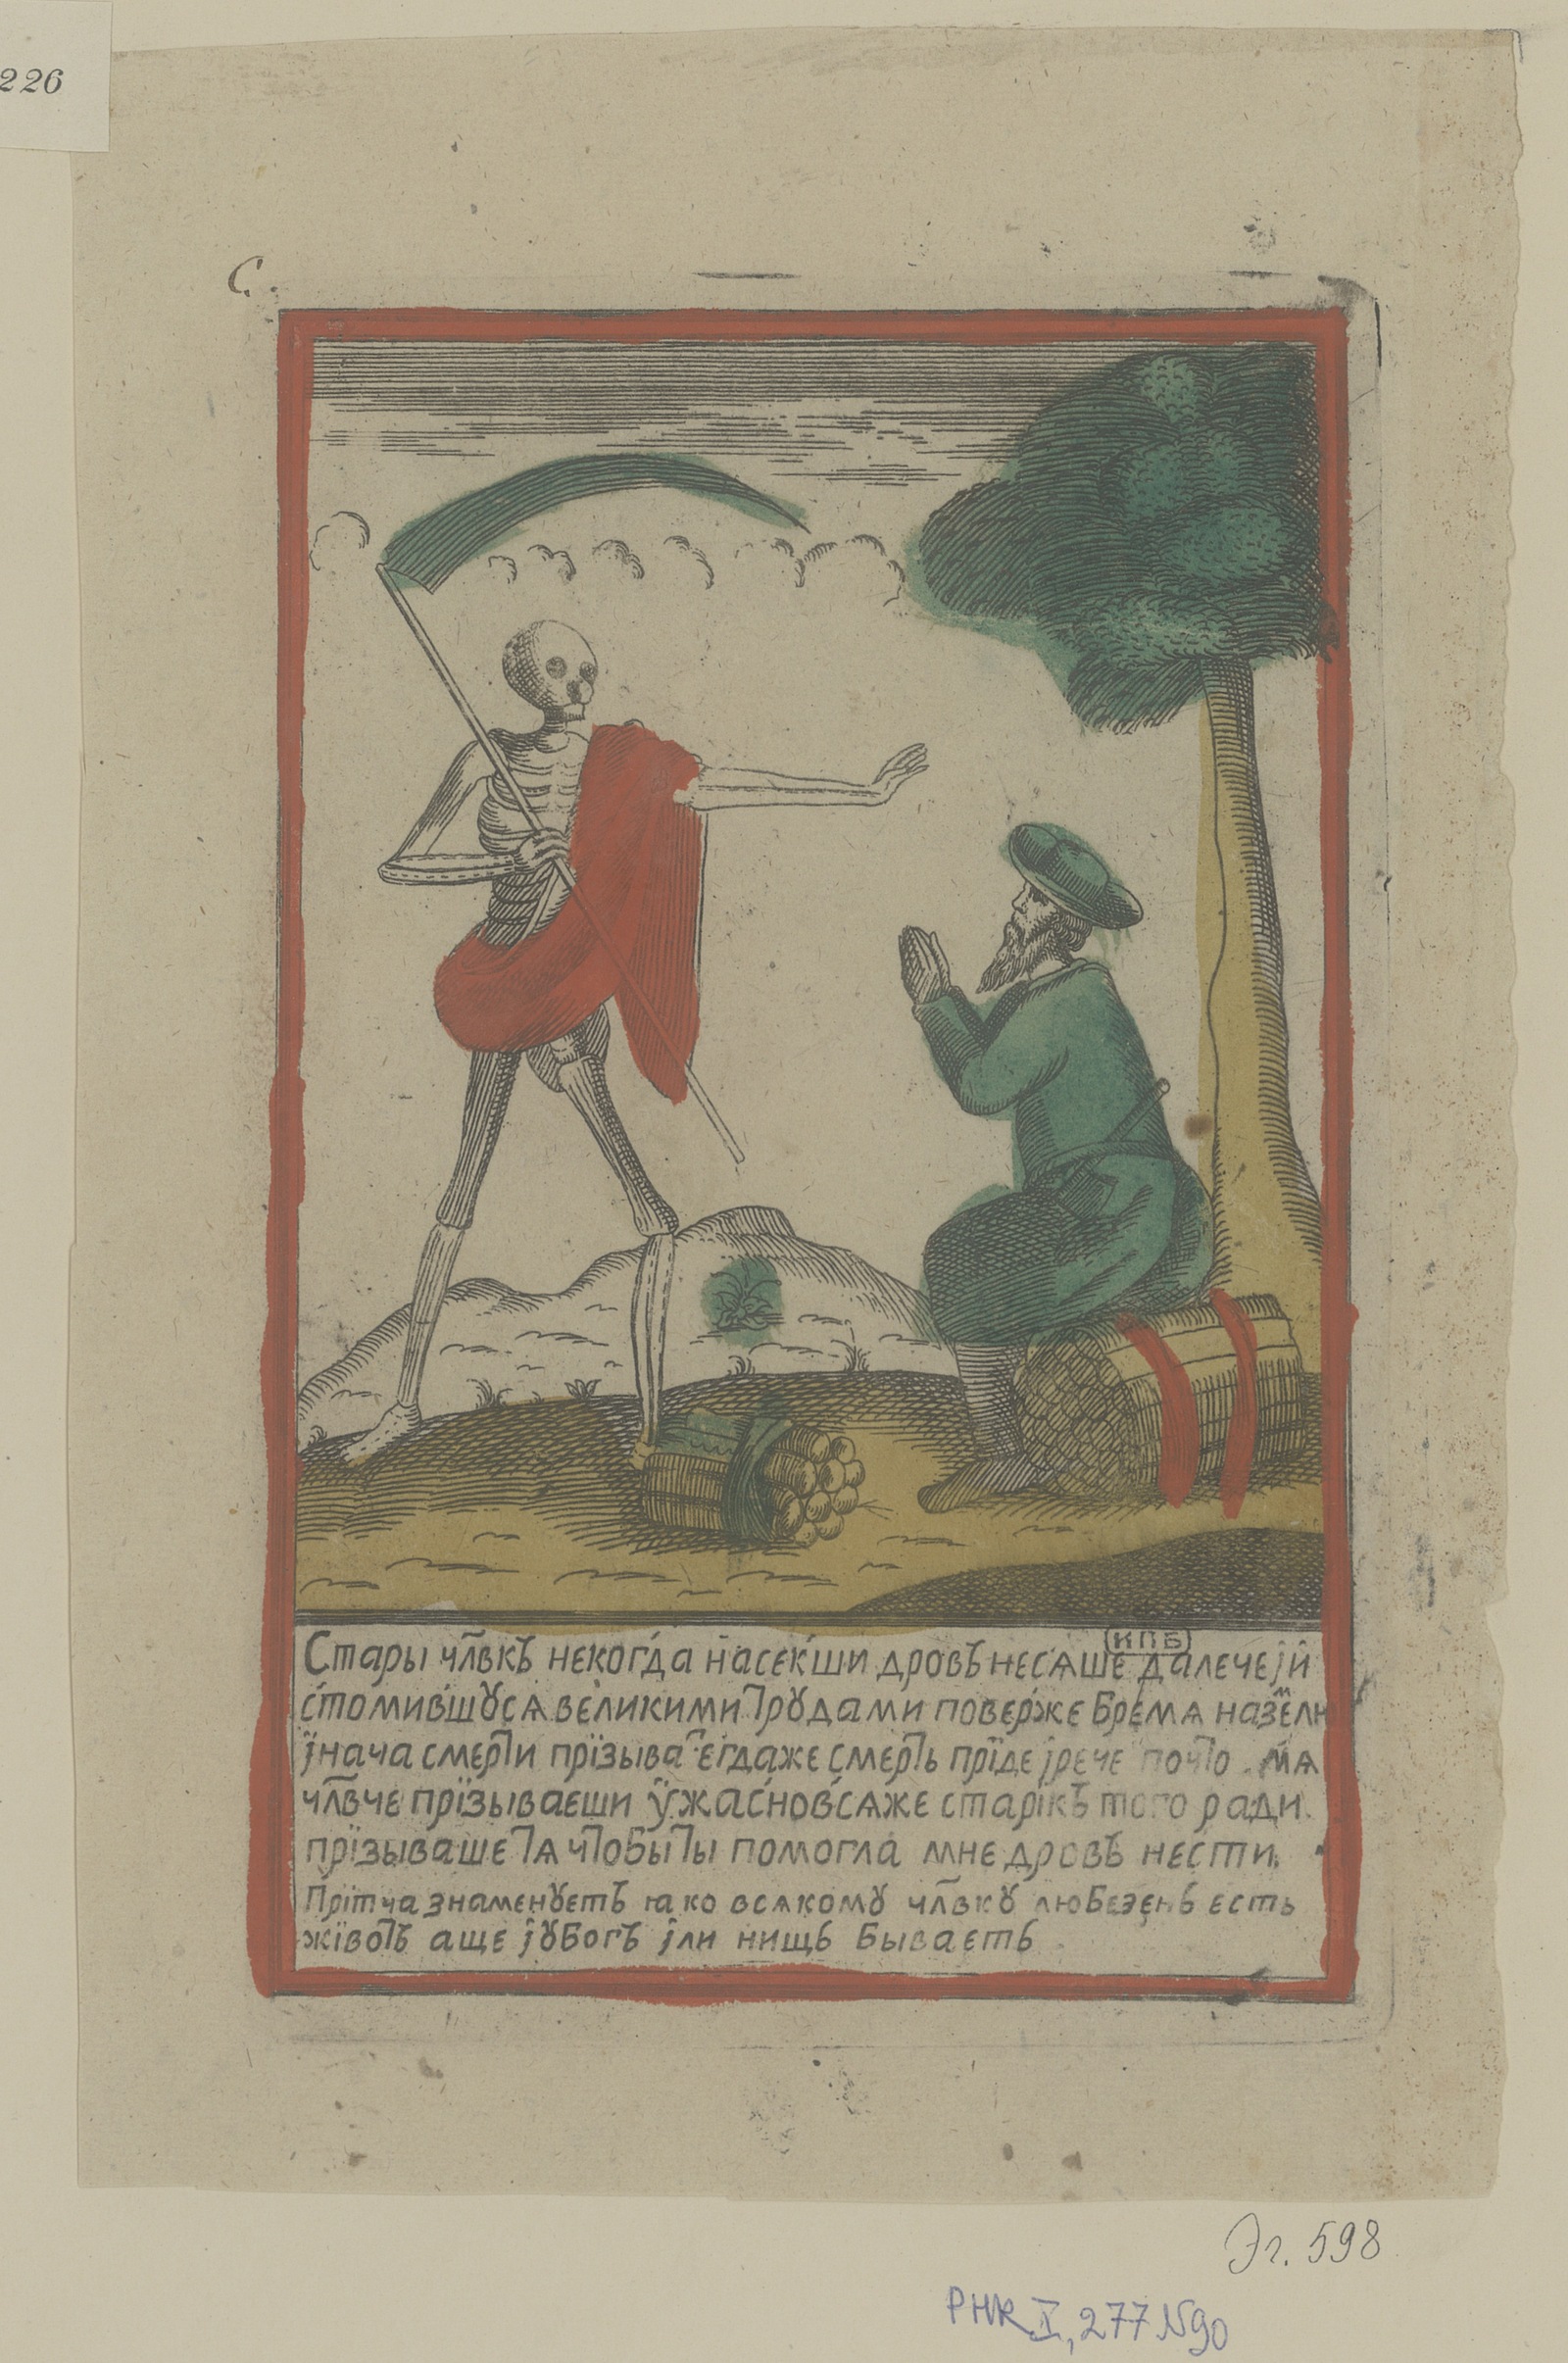 226
С.
КПБ
Стары чл͠вкъ некогда насекши дровъ несѧше далече ји
стомившꙋсѧ великими трꙋдами повєрже бремѧ назємлю
јнача смерти прїзыва͡т єгдаже смерть прїде јрече почто мѧ
чл͠вче прїзываєши ꙋжаснов́сѧже старікъ того ради
прїзываше тѧ чтобы ты помогла мне дровъ нєсти
Прітча знаменꙋетъ ꙗко всѧкомꙋ чл͠вкꙋ любезєнь єсть
жівотъ аще јꙋбогъ јли нищь бываєть
Эг. 598
РНК V, 277 N90